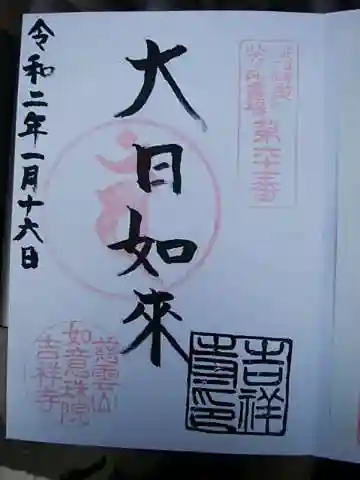 第六十三番
大日如來
令和二年一月十六日
慈雲山
如意珠院
吉祥寺
吉祥
寺印